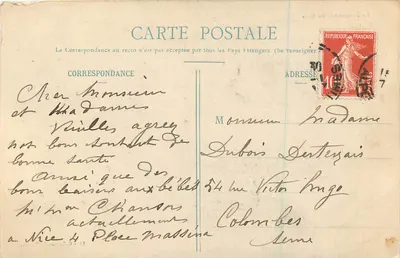 CARTE POSTALE
La Correspondance au recto n'est pas acceptée par tous les Pays Etrangers (Se renseigner
CORRESPONDANCE
Cher Monsieur
et Madame
Veuillez agréer
nos bons souhait de
bonne santé
ainsi que des
bons baisers aux bébés
actuellement
a Nice 4 Place Massena
ADRESSE
REPUBLIQUE FRANÇAISE
10
Monsieur Madame
Dubois
54 rue Victor Hugo
Colombes
Seine